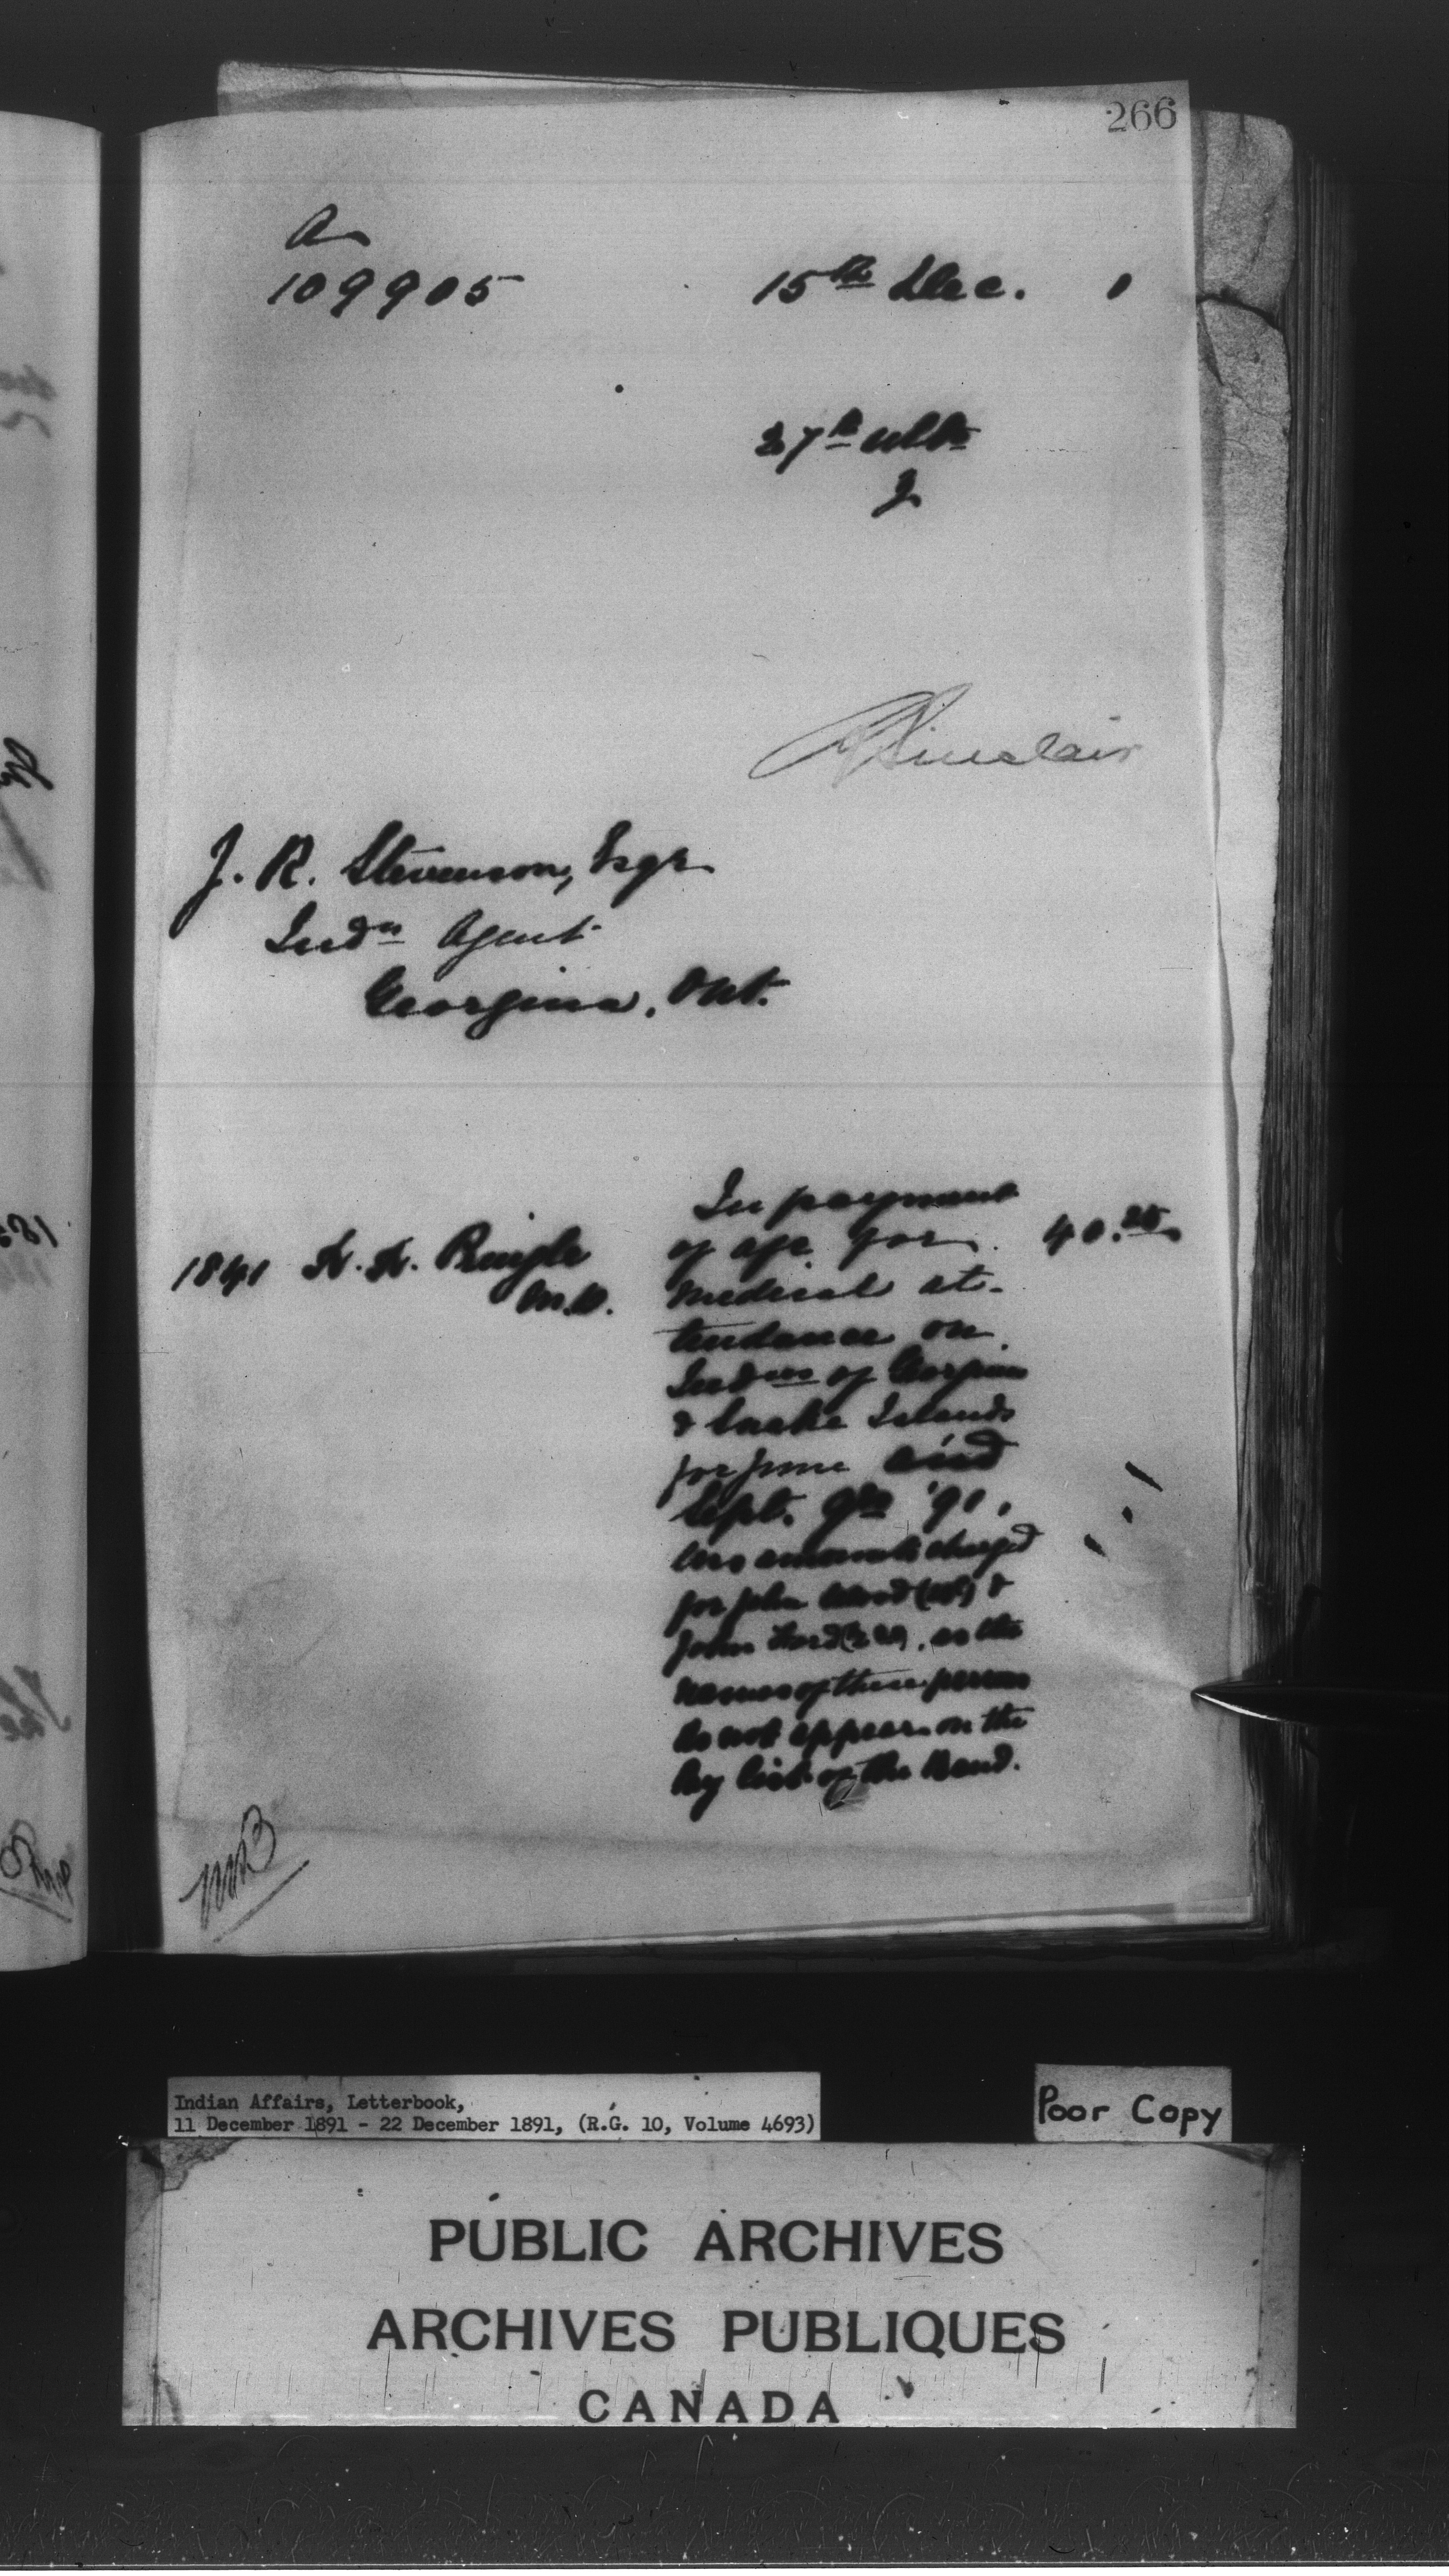 266
A
109905
15th Dec. 1
27th ulto
J
Sinclair
J. R. Stevenson, Esqr
Indn Agent
Georgina, Ont.
In payment
1841 Pringle of a/c for 40.25
M.D. Medical at-
tendance on
Indns of Georgina
& Snake Islands
for June and
Sept. Qrs '91,
less amounts charged
for John &
John as the
names of these persons
do not appear on the
Pay list of the Band.
Indian Affairs, Letterbook,
11 December 1891 - 22 December 1891, (R.G. 10, Volume 4693)
Poor Copy
PUBLIC ARCHIVES
ARCHIVES PUBLIQUES
CANADA